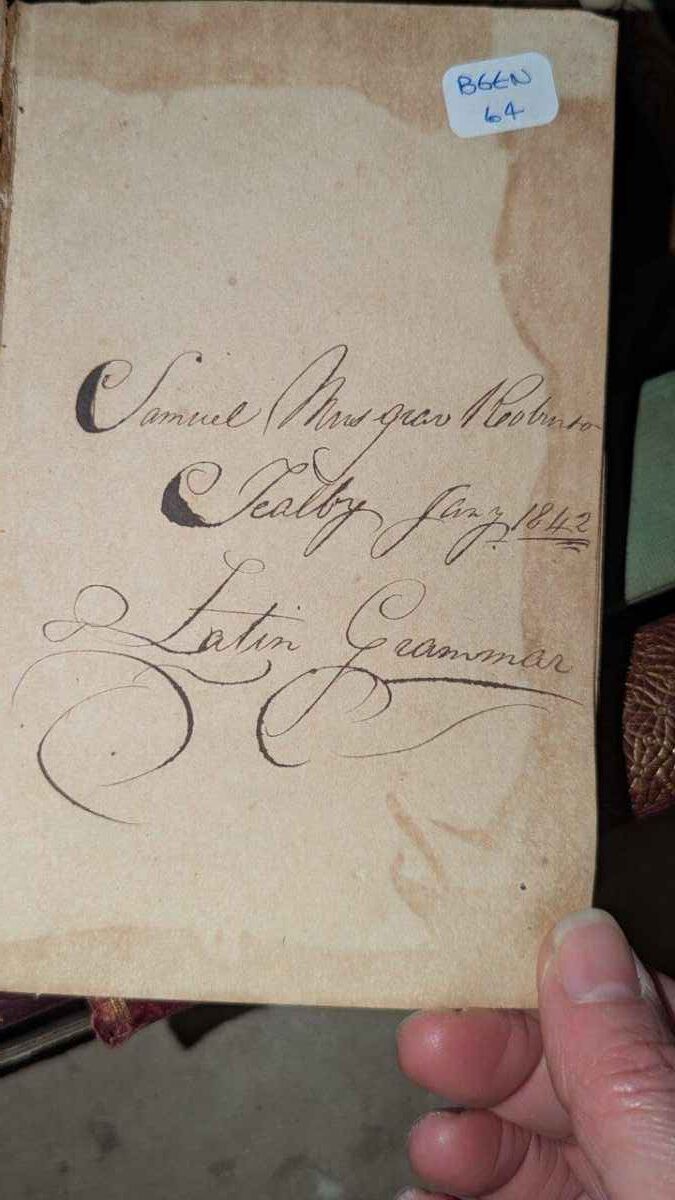 BGEN
64
Samuel Musgrav Robinson
Tealby Jany 1842
Latin Grammar